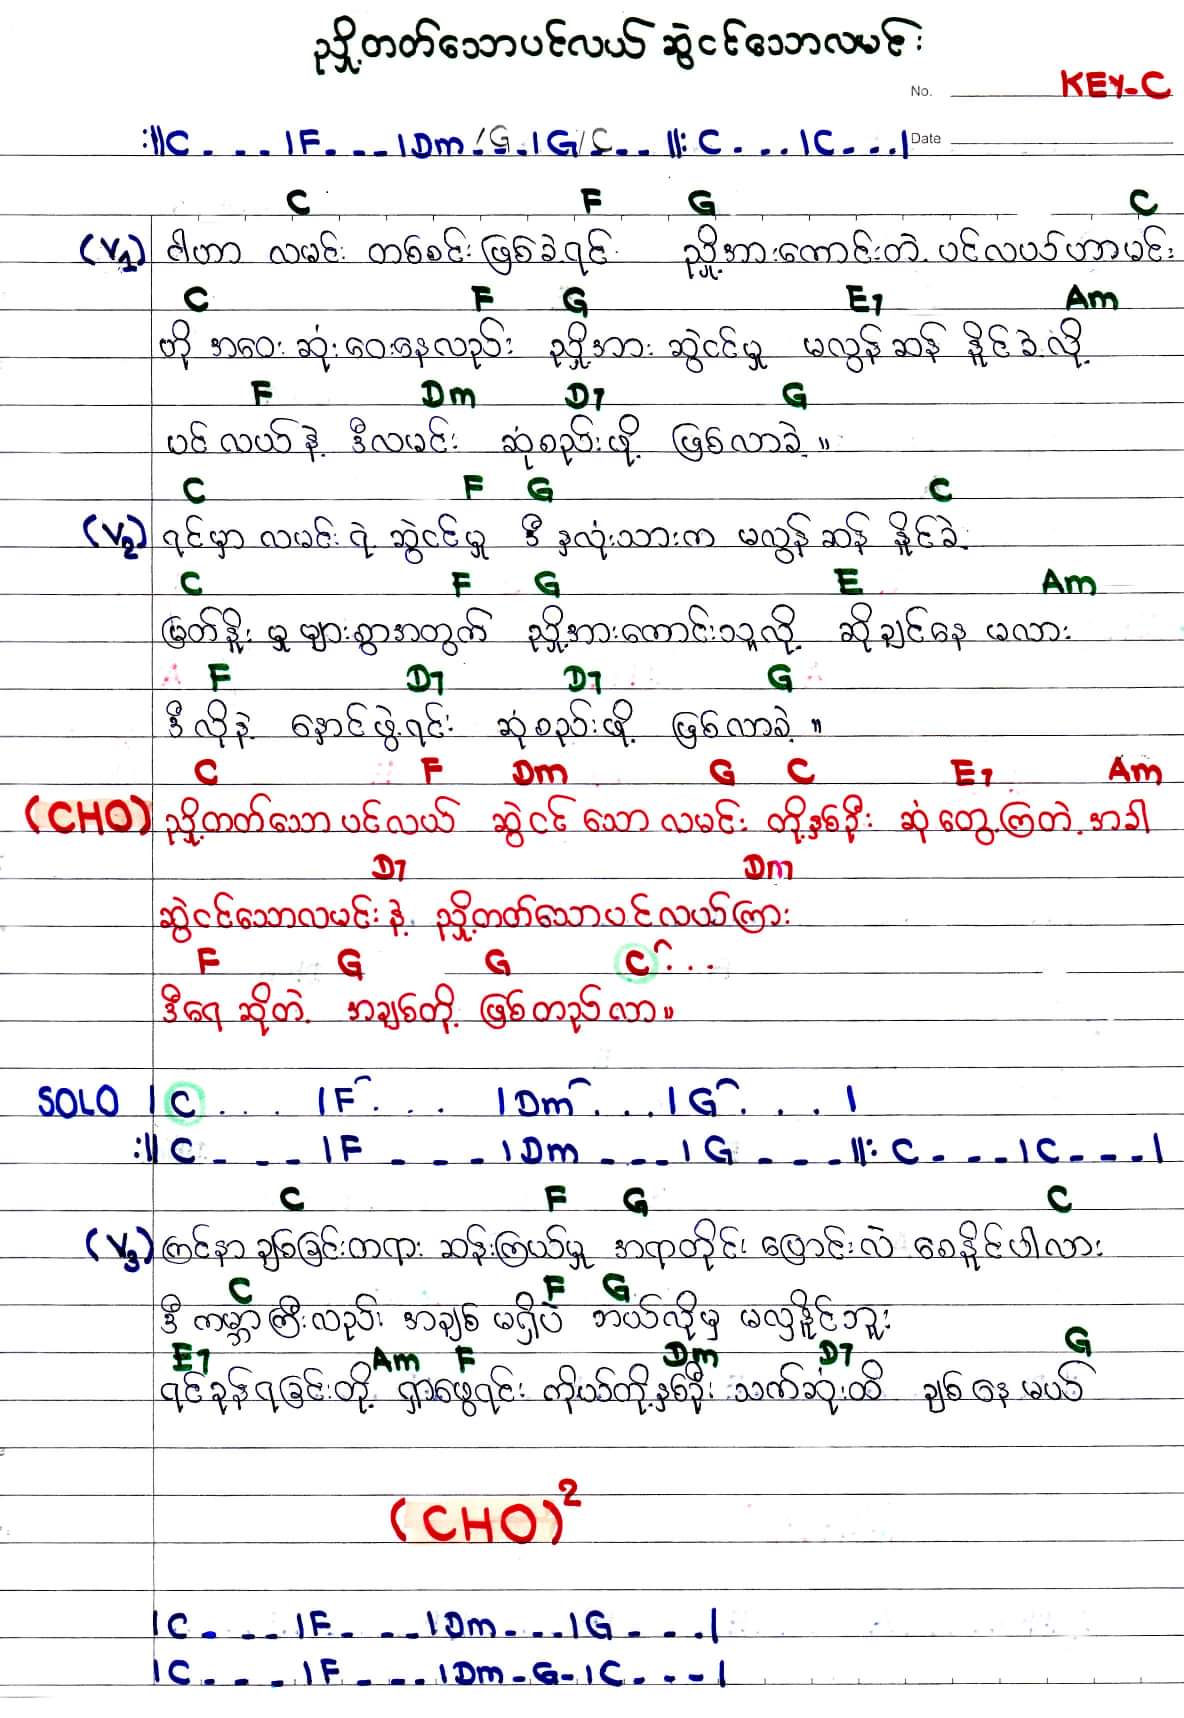 ညှို့တတ်သောပင်လယ် ဆွဲငင်သောလမင်း
No. KEY-C
:||C - - - |F - - - |Dm - /G - |G /C - - ||: C - - - |C - - - |
Date
C F G C
(V1) ငါဟာ လမင်း တစ်စင်း ဖြစ်ခဲ့ရင် ညှို့အားကောင်းတဲ့ ပင်လယ်ဟာမင်း
C F G E7 Am
တို့ အဝေး ဆုံး ဝေးနေလည်း ညှို့အား ဆွဲငင်မှု မလွန်ဆန် နိုင်ခဲ့လို့
F Dm D7 G
ပင်လယ်နဲ့ ဒီလမင်း ဆုံစည်းဖို့ ဖြစ်လာခဲ့ ။
C F G C
(V2) ရင်မှာ လမင်း ရဲ့ ဆွဲငင်မှု ဒီ နှလုံးသားက မလွန်ဆန် နိုင်ခဲ့
C F G E Am
မြတ်နိုး မှု များစွာအတွက် ညှို့အားကောင်းသူလို့ ဆိုချင်နေ မလား
F D7 D7 G
ဒီလိုနဲ့ နှောင်ဖွဲ့ရင်း ဆုံစည်းဖို့ ဖြစ်လာခဲ့ ။
C F Dm G C E7 Am
(CHO) ညှို့တတ်သော ပင်လယ် ဆွဲငင်သော လမင်း တို့နှစ်ဦး ဆုံတွေ့ကြတဲ့ အခါ
D7 Dm
ဆွဲငင်သောလမင်းနဲ့ ညှို့တတ်သောပင်လယ်ကြား
F G G C . . .
ဒီရေ ဆိုတဲ့ အချစ်တို့ ဖြစ်တည်လာ။
SOLO |C . . . |F . . . |Dm . . . |G . . . |
:||C - - - |F - - - |Dm - - - |G - - - ||: C - - - |C - - - |
C F G C
(V3) ကြင်နာ ချစ်ခြင်းတရား ဆန်းကြယ်မှု အရာတိုင်း ပြောင်းလဲ စေနိုင်ပါလား
C F G
ဒီ ကမ္ဘာကြီးလည်း အချစ် မရှိပဲ ဘယ်လိုမှ မလှနိုင်ဘူး
E7 Am F Dm D7 G
ရင်ခုန်ရခြင်းတို့ ရှာဖွေရင်း ကိုယ်တို့နှစ်ဦး သက်ဆုံးထိ ချစ်နေမယ်
(CHO)²
|C - - - |F - - - |Dm - - - |G - - - |
|C - - - |F - - - |Dm - G - |C - - - |